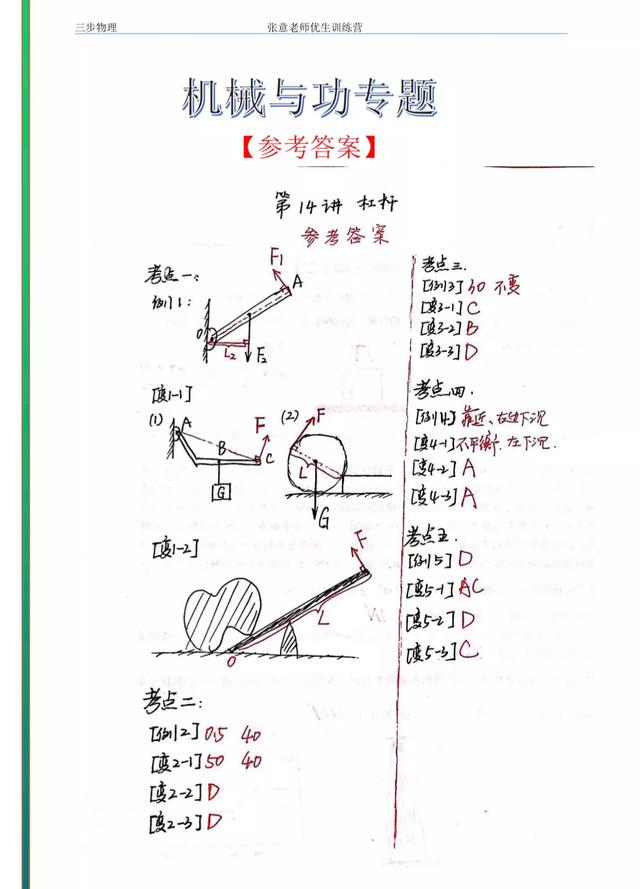 三步物理 张意老师优生训练营
机械与功专题
【参考答案】
第14讲 杠杆
参考答案
考点一、
例1：
F1
A
O
L2
F2
[变1-1]
(1) A B C F G
(2) F L G
[变1-2]
F
L
O
考点二：
[例2] 0.5 40
[变2-1] 50 40
[变2-2] D
[变2-3] D
考点三.
[例3] 30 不变
[变3-1] C
[变3-2] B
[变3-3] D
考点四.
[例4] 靠近、右边下沉
[变4-1] 不平衡.左下沉.
[变4-2] A
[变4-3] A
考点五.
[例5] D
[变5-1] AC
[变5-2] D
[变5-3] C